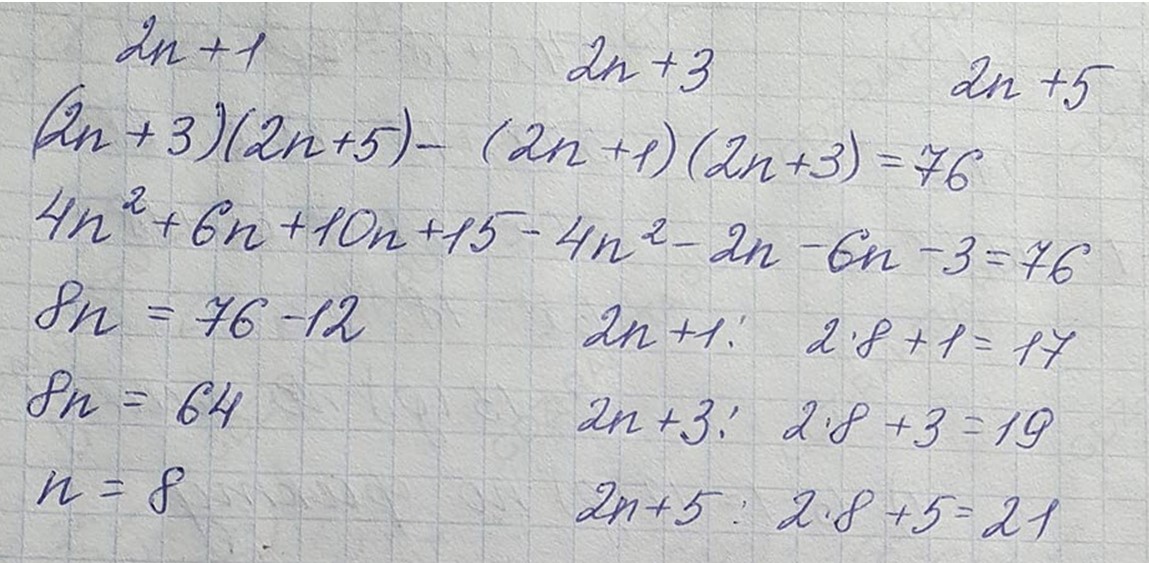 2n+1 2n+3 2n+5
(2n+3)(2n+5)- (2n+1)(2n+3)=76
4n²+6n+10n+15-4n²-2n-6n-3=76
8n = 76-12 2n+1: 2·8+1=17
8n = 64 2n+3: 2·8+3=19
n = 8 2n+5: 2·8+5=21